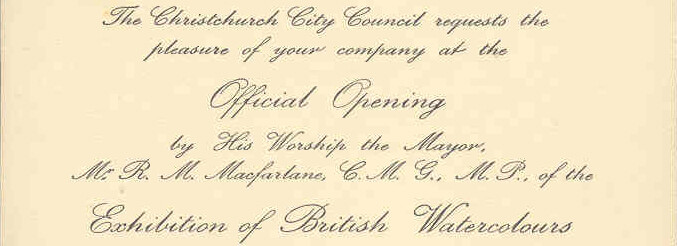 The Christchurch City Council requests the
pleasure of your company at the
Official Opening
by His Worship the Mayor,
Mr. R. M. Macfarlane, C. M. G., M. P., of the
Exhibition of British Watercolours